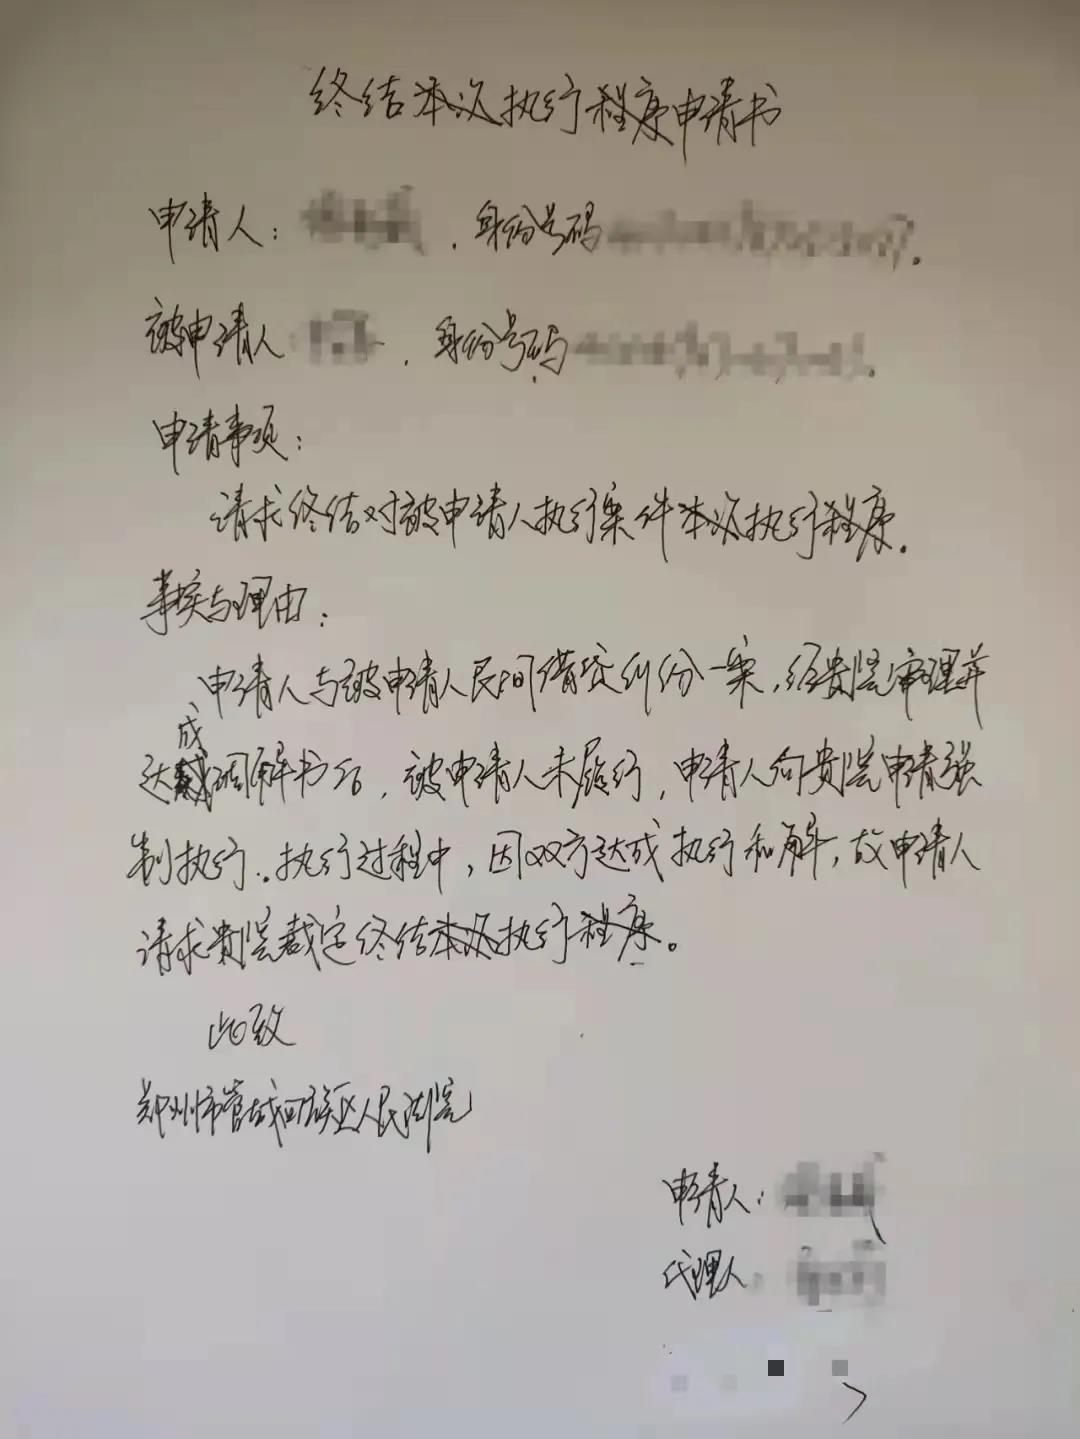 终结本次执行程序申请书
申请人: , 身份号码 .
被申请人 , 身份号码 .
申请事项:
请求终结对被申请人执行案件本次执行程序.
事实与理由:
申请人与被申请人民间借贷纠纷一案,经贵院审理并
达成调解书后,被申请人未履行,申请人向贵院申请强
制执行.执行过程中,因双方达成执行和解,故申请人
请求贵院裁定终结本次执行程序。
此致
郑州市管城回族区人民法院
申请人:
代理人